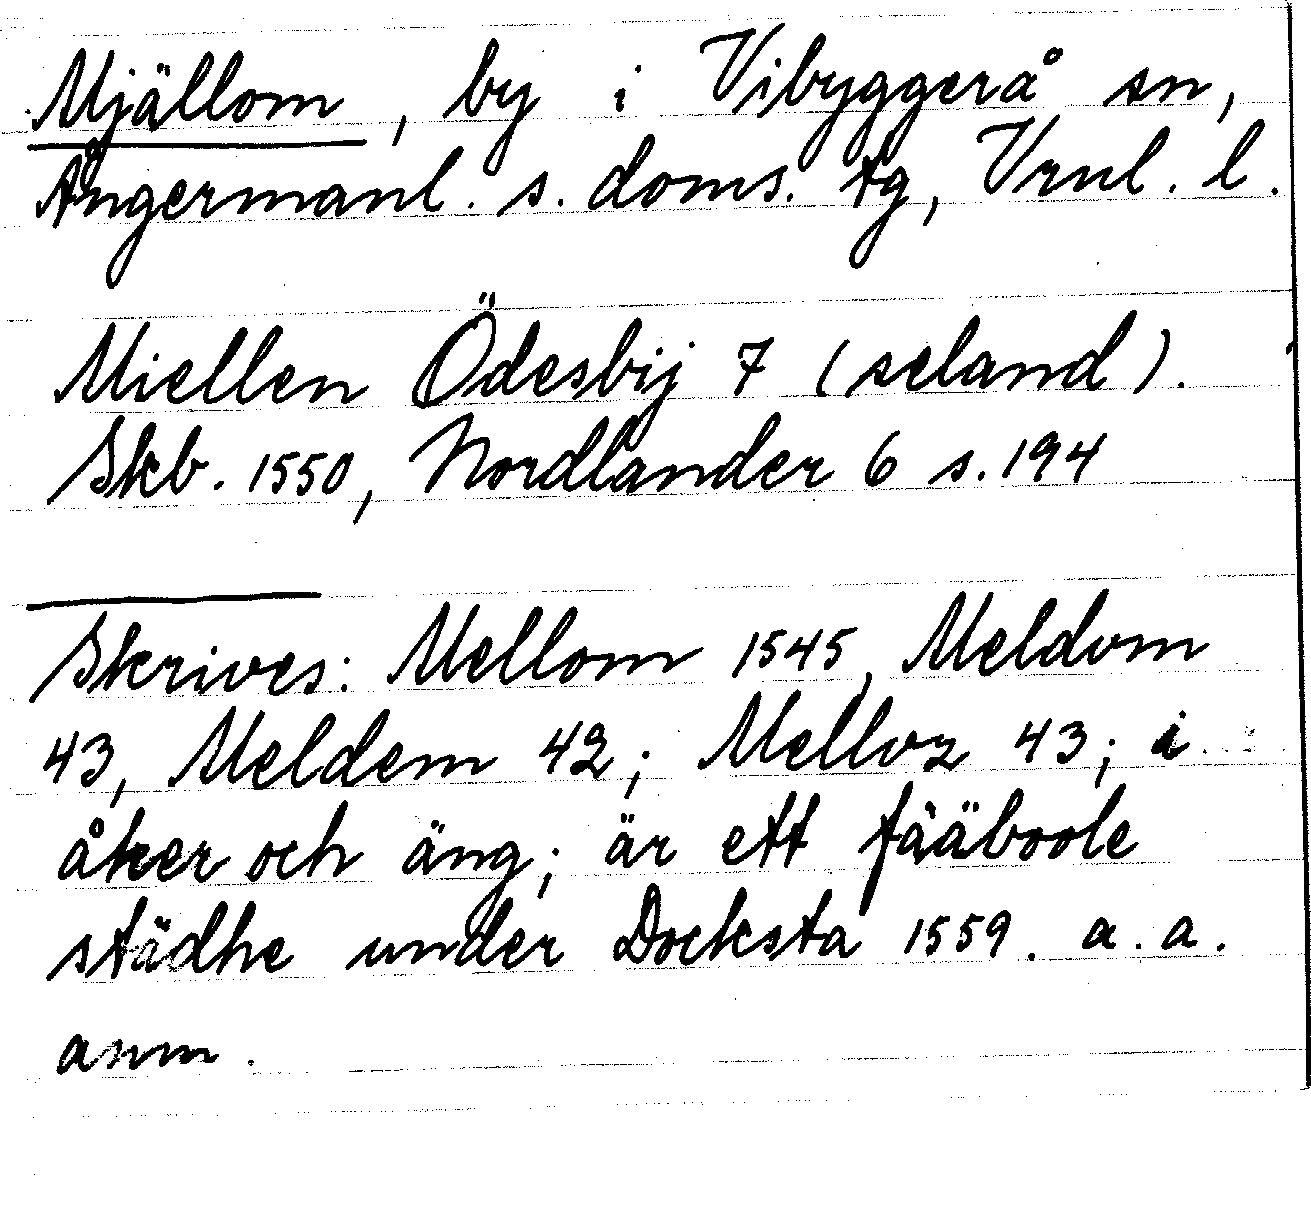 Mjällom, by i Vibyggerå sn,
Ångermanl. s. doms. tg, Vrnl. l.
Miellen Ödesbij 7 (seland).
Skb. 1550, Nordlander 6 s. 194
Skrives: Mellom 1545, Meldom
43, Meldem 42; Melloz 43; i
åker och äng; är ett fääboole
städhe under Docksta 1559. a. a.
anm.